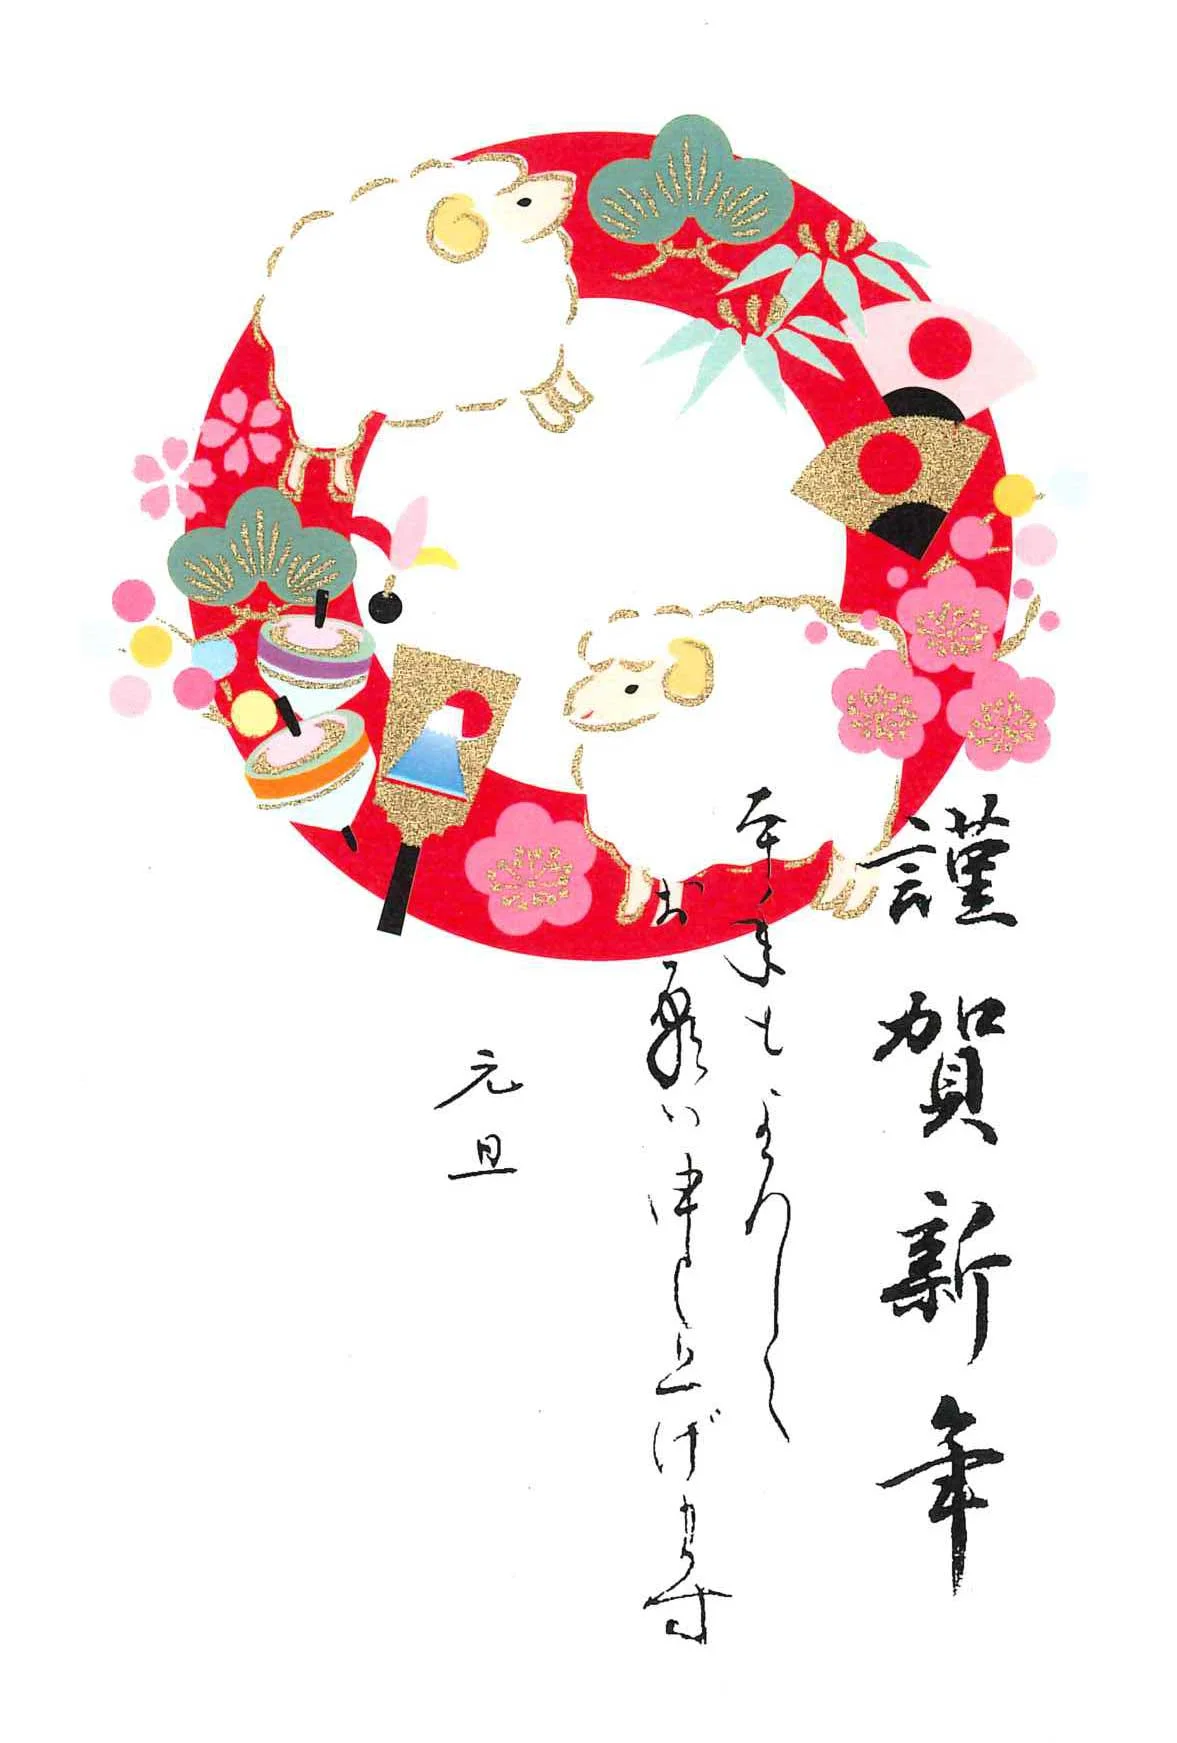 謹賀新年
本年もよろしく
お願い申し上げます
元旦